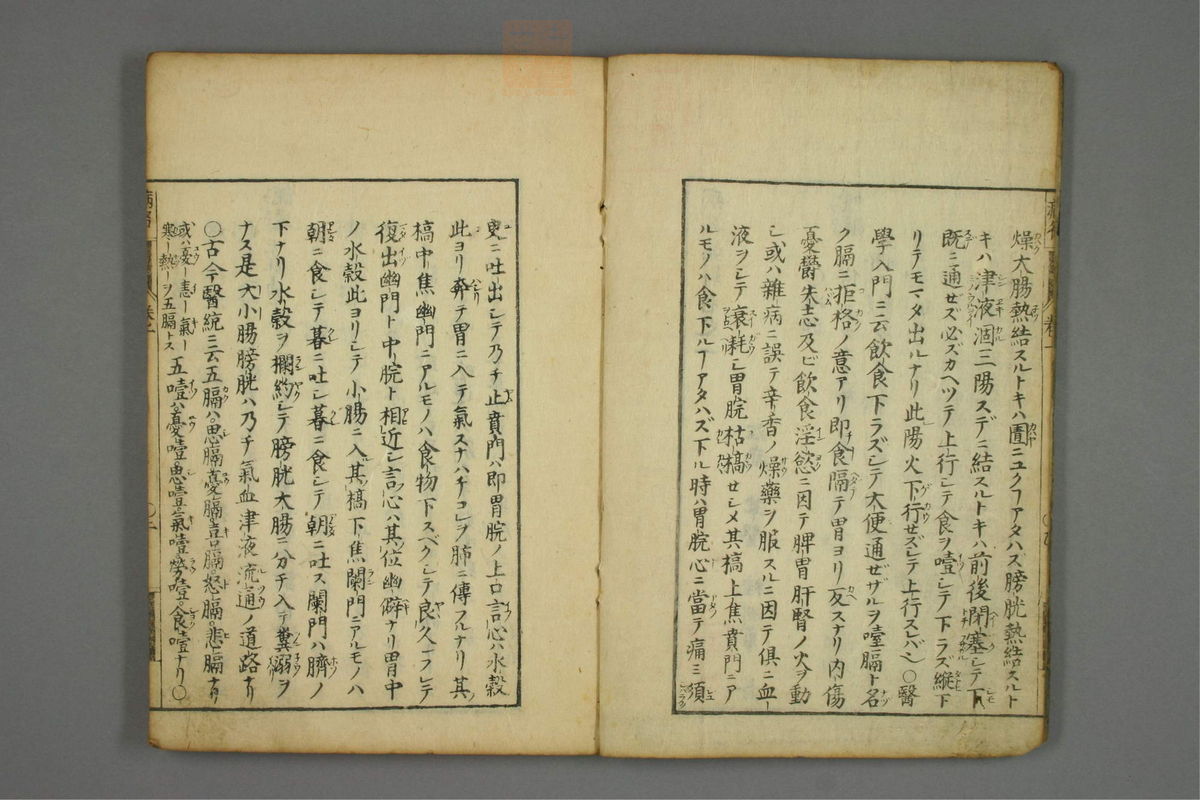 燥大腸熱結スルトキハ圊ニユクヿアタハズ膀胱熱結スルト
キハ津液涸三陽スデニ結スルトキハ前後閉塞シテ下
既ニ通ゼズ必ズカヘツテ上行シテ食ヲ噎シテ下ラズ縱下
リテモマタ出ルナリ此陽火下行セズシテ上行スレバ也○醫
學入門ニ云飲食下ラズシテ大便通ゼザルヲ噎膈ト名
ク膈ニ拒格ノ意アリ即食隔テ胃ヨリ反スナリ内傷
憂鬱失志及ビ飲食淫慾ニ因テ脾胃肝腎ノ火ヲ動
シ或ハ雜病ニ誤テ辛香ノ燥藥ヲ服スルニ因テ俱ニ血
液ヲシテ衰耗シ胃脘枯槁セシメ其槁上焦賁門ニア
ルモノハ食下ルヿアタハズ下ル時ハ胃脘心ニ當テ痛ミ須
臾ニ吐出シテ乃チ止賁門ハ即胃脘ノ上口言心ハ水穀
此ヨリ奔テ胃ニ入テ氣スナハチコレヲ肺ニ傳フルナリ其
槁中焦幽門ニアルモノハ食物下スベクシテ良久フシテ
復出幽門ト中脘ト相近シ言心ハ其位幽僻ナリ胃中
ノ水穀此ヨリシテ小腸ニ入其槁下焦闌門ニアルモノハ
朝ニ食シテ暮ニ吐シ暮ニ食シテ朝ニ吐ス闌門ハ臍ノ
下ナリ水穀ヲ欄約シテ膀胱大腸ニ分チ入テ糞溺ヲ
ナス是大小腸膀胱ハ乃チ氣血津液流通ノ道路ナリ
○古今醫統ニ云五膈ハ思膈憂膈喜膈怒膈悲膈ナリ
或ハ憂ー恚ー氣ー
寒ー熱ーヲ五膈トス
五噎ハ憂噎思噎氣噎勞噎食噎ナリ○